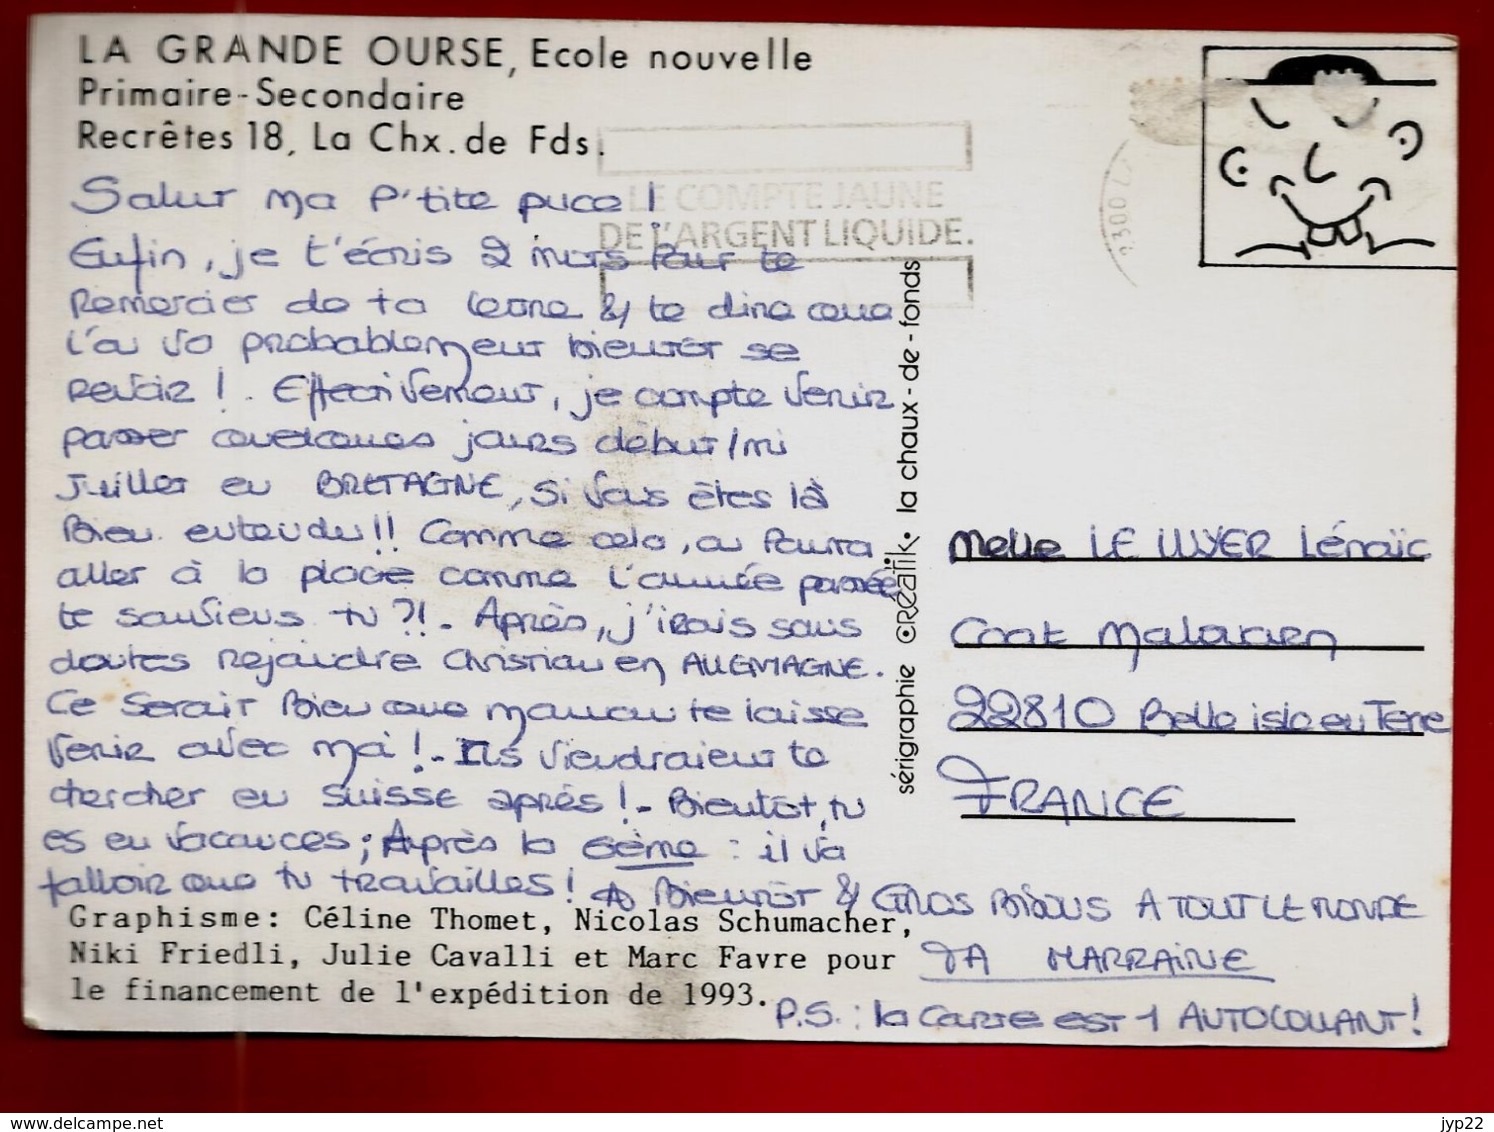 LA GRANDE OURSE, Ecole nouvelle
Primaire-Secondaire
Recrêtes 18, La Chx. de Fds.
LE COMPTE JAUNE
DE L'ARGENT LIQUIDE.
2300
Salut ma p'tite puce !
Enfin, je t'écris 2 mots pour te
remercier de ta lettre & te dire que
l'on va probablement bientôt se
revoir ! . Effectivement, je compte venir
passer quelques jours début/mi
Juillet en BRETAGNE, si vous êtes là
bien entendu !! Comme cela, on pourra
aller à la plage comme l'année passée
te souviens tu ?! - Après, j'irais sans
doutes rejoindre Christian en ALLEMAGNE.
Ce serait bien que maman te laisse
venir avec moi ! - Ils viendraient te
chercher en SUISSE après ! - Bientôt, tu
es en vacances ; Après la 6ème : il va
falloir que tu travailles ! A Bientôt & GROS BISOUS A TOUT LE MONDE
TA MARRAINE
P.S. : la carte est 1 AUTOCOLLANT !
Graphisme: Céline Thomet, Nicolas Schumacher,
Niki Friedli, Julie Cavalli et Marc Favre pour
le financement de l'expédition de 1993.
sérigraphie CRÉATIK • la chaux-de-fonds
Melle LE LUYER Lénaïc
Coat
22810 Belle isle en Terre
FRANCE
jyp22